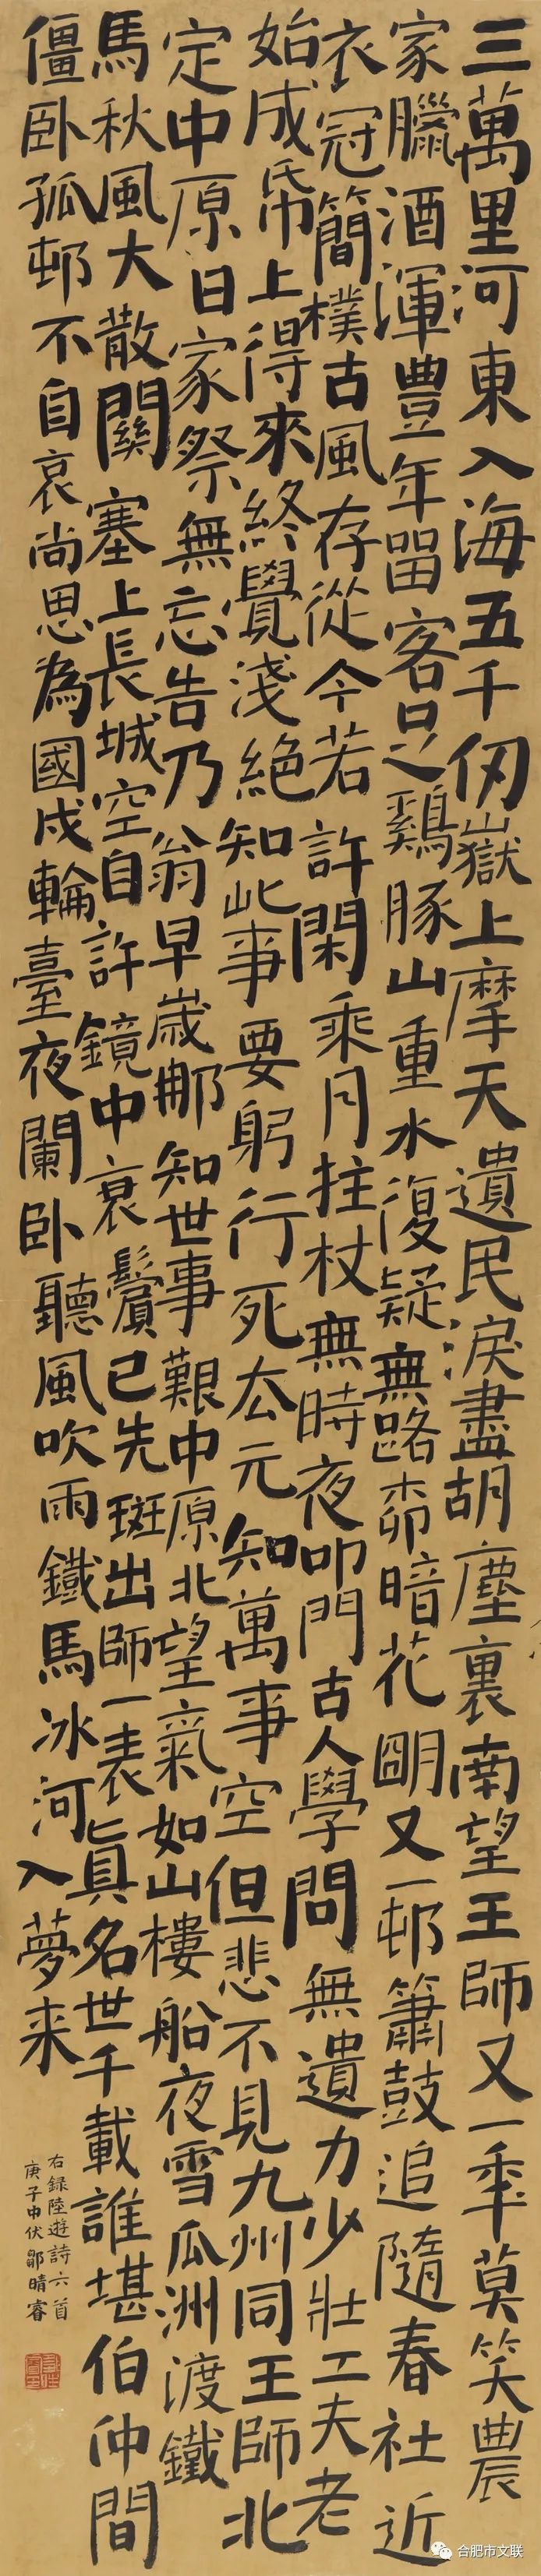 三萬里河東入海五千仞嶽上摩天遺民淚盡胡塵裏南望王師又一秊莫笑農
家臘酒渾豊年留客足鷄豚山重水復疑無路桺暗花朙又一邨簫鼓追隨春社近
衣冠簡樸古風存從今若許閑乘月拄杖無時夜叩門古人學問無遺力少壯工夫老
始成帋上得來終覺淺絕知此事要躬行死去元知萬事空但悲不見九州同王師北
定中原日家祭無忘告乃翁早歲那知世事艱中原北望氣如山樓船夜雪瓜洲渡鐵
馬秋風大散關塞上長城空自許鏡中衰鬢已先斑出師一表真名世千載誰堪伯仲間
僵卧孤邨不自哀尚思為國戍輪臺夜闌卧聽風吹雨鐵馬冰河入夢来
右録陸遊詩六首
庚子中伏鄒晴睿
合肥市文联